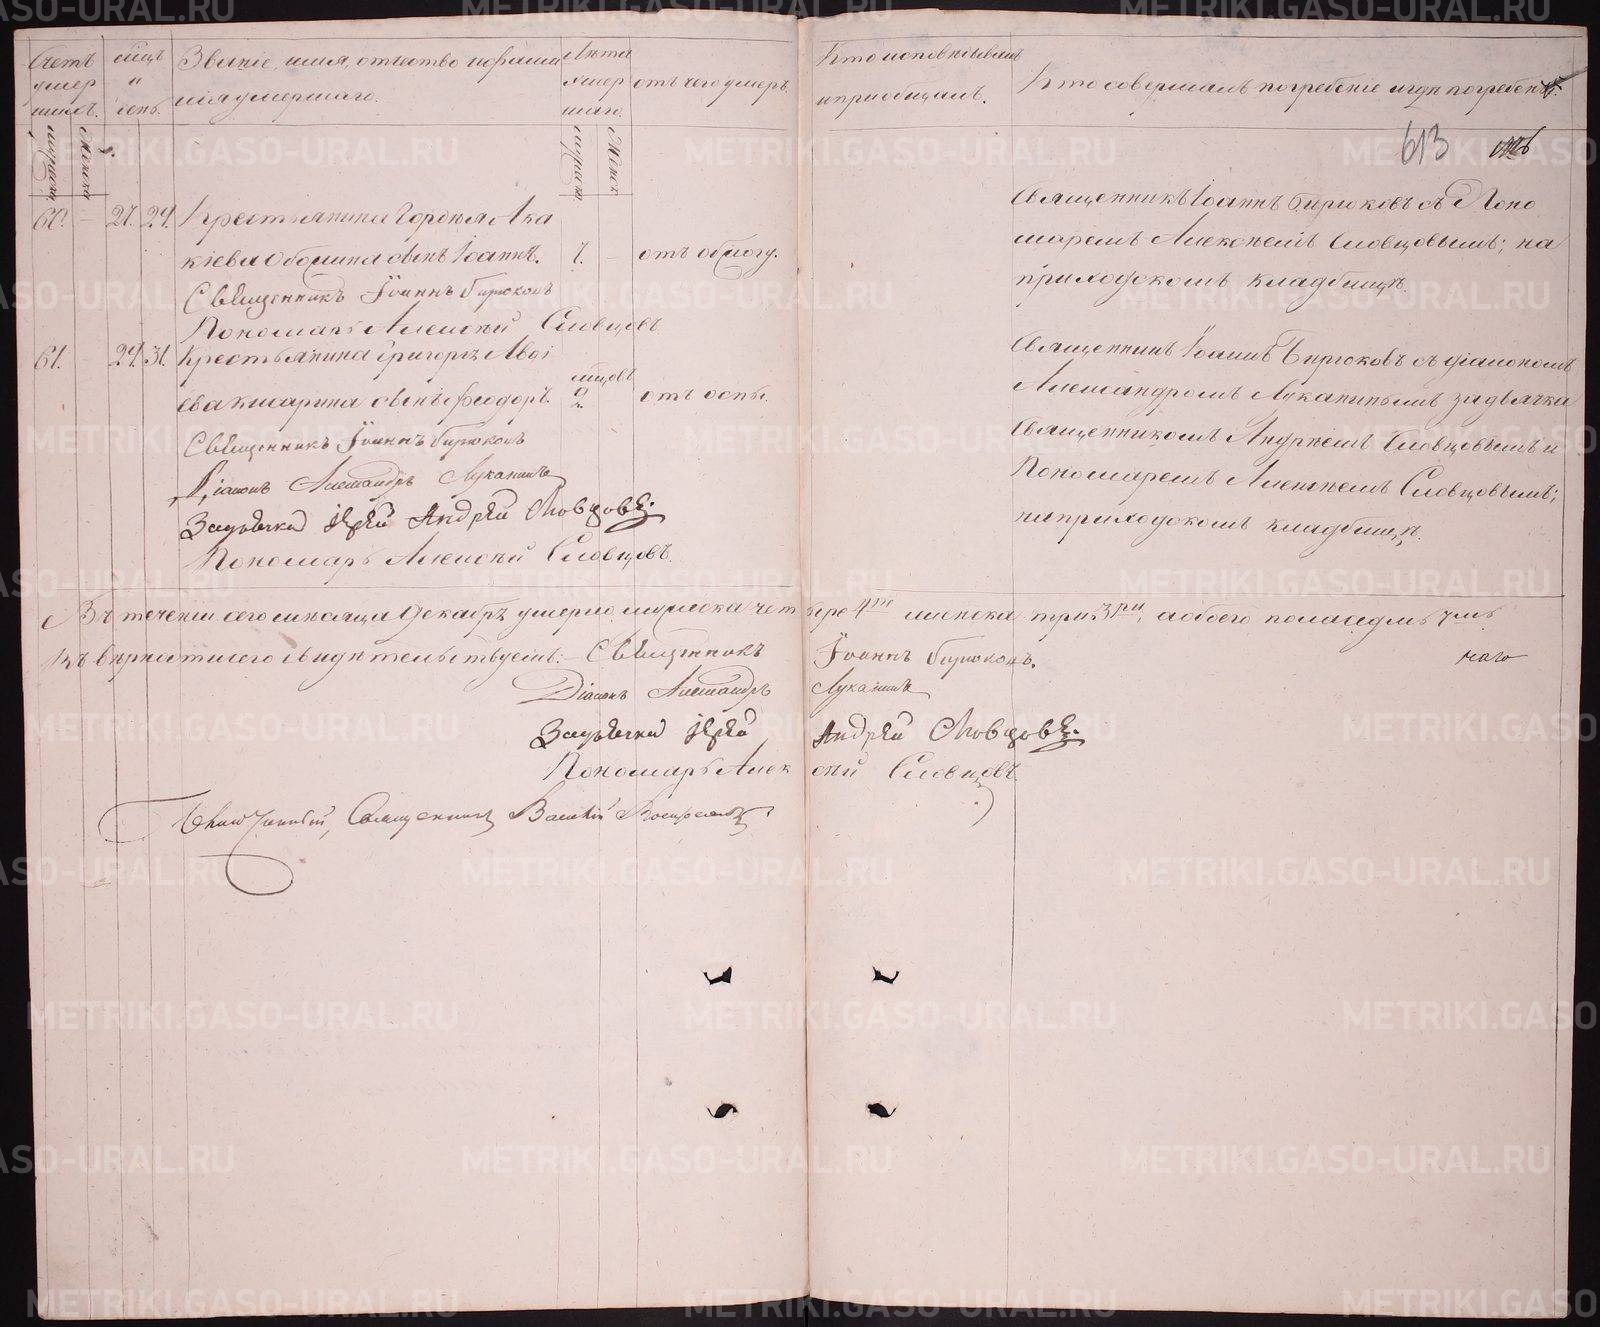 Счетъ умершихъ.
мѣсцъ и день.
Званіе, имя, отчество и фамилія умершаго.
Лѣта умершаго.
отъ чего умеръ.
Кто исповѣдывалъ и пріобщалъ.
Кто совершалъ погребеніе и гдѣ погребенъ.
613
60. — 27. 29. Крестьянина Гордѣя Ака
кіева сынъ Іоаннъ. 7. — отъ
Священникъ Іоаннъ Бирюковъ
Пономарь Алексѣй Словцовъ
Священникъ Іоаннъ Бирюковъ съ Поно
маремъ Алексѣемъ Словцовымъ; на
приходскомъ кладбищѣ.
61. — 29. 31. Крестьянина Григорья Авдѣ
ева сынъ Феодоръ. мѣсцовъ 9 отъ оспы.
Священникъ Іоаннъ Бирюковъ
Діаконъ Александръ Луканинъ
Задьячка Іерей Андрей Словцовъ.
Пономарь Алексѣй Словцовъ.
Священникъ Іоаннъ Бирюковъ съ діакономъ
Александромъ Луканинымъ задьячка
Священникомъ Андреемъ Словцовымъ и
Пономаремъ Алексѣемъ Словцовымъ;
на приходскомъ кладбищѣ.
Въ теченіи сего мѣсяца Декабрѣ умерло мужеска четыре 4ре женска три 3ри, а обоего пола седмь 7мь
Въ вѣрности сего свидѣтельствуемъ: Священникъ Іоаннъ Бирюковъ.
Діаконъ Александръ Луканинъ
Задьячка Іерей Андрей Словцовъ.
Пономарь Алексѣй Словцовъ
Благочинный, Священникъ Василій
METRIKI.GASO-URAL.RU